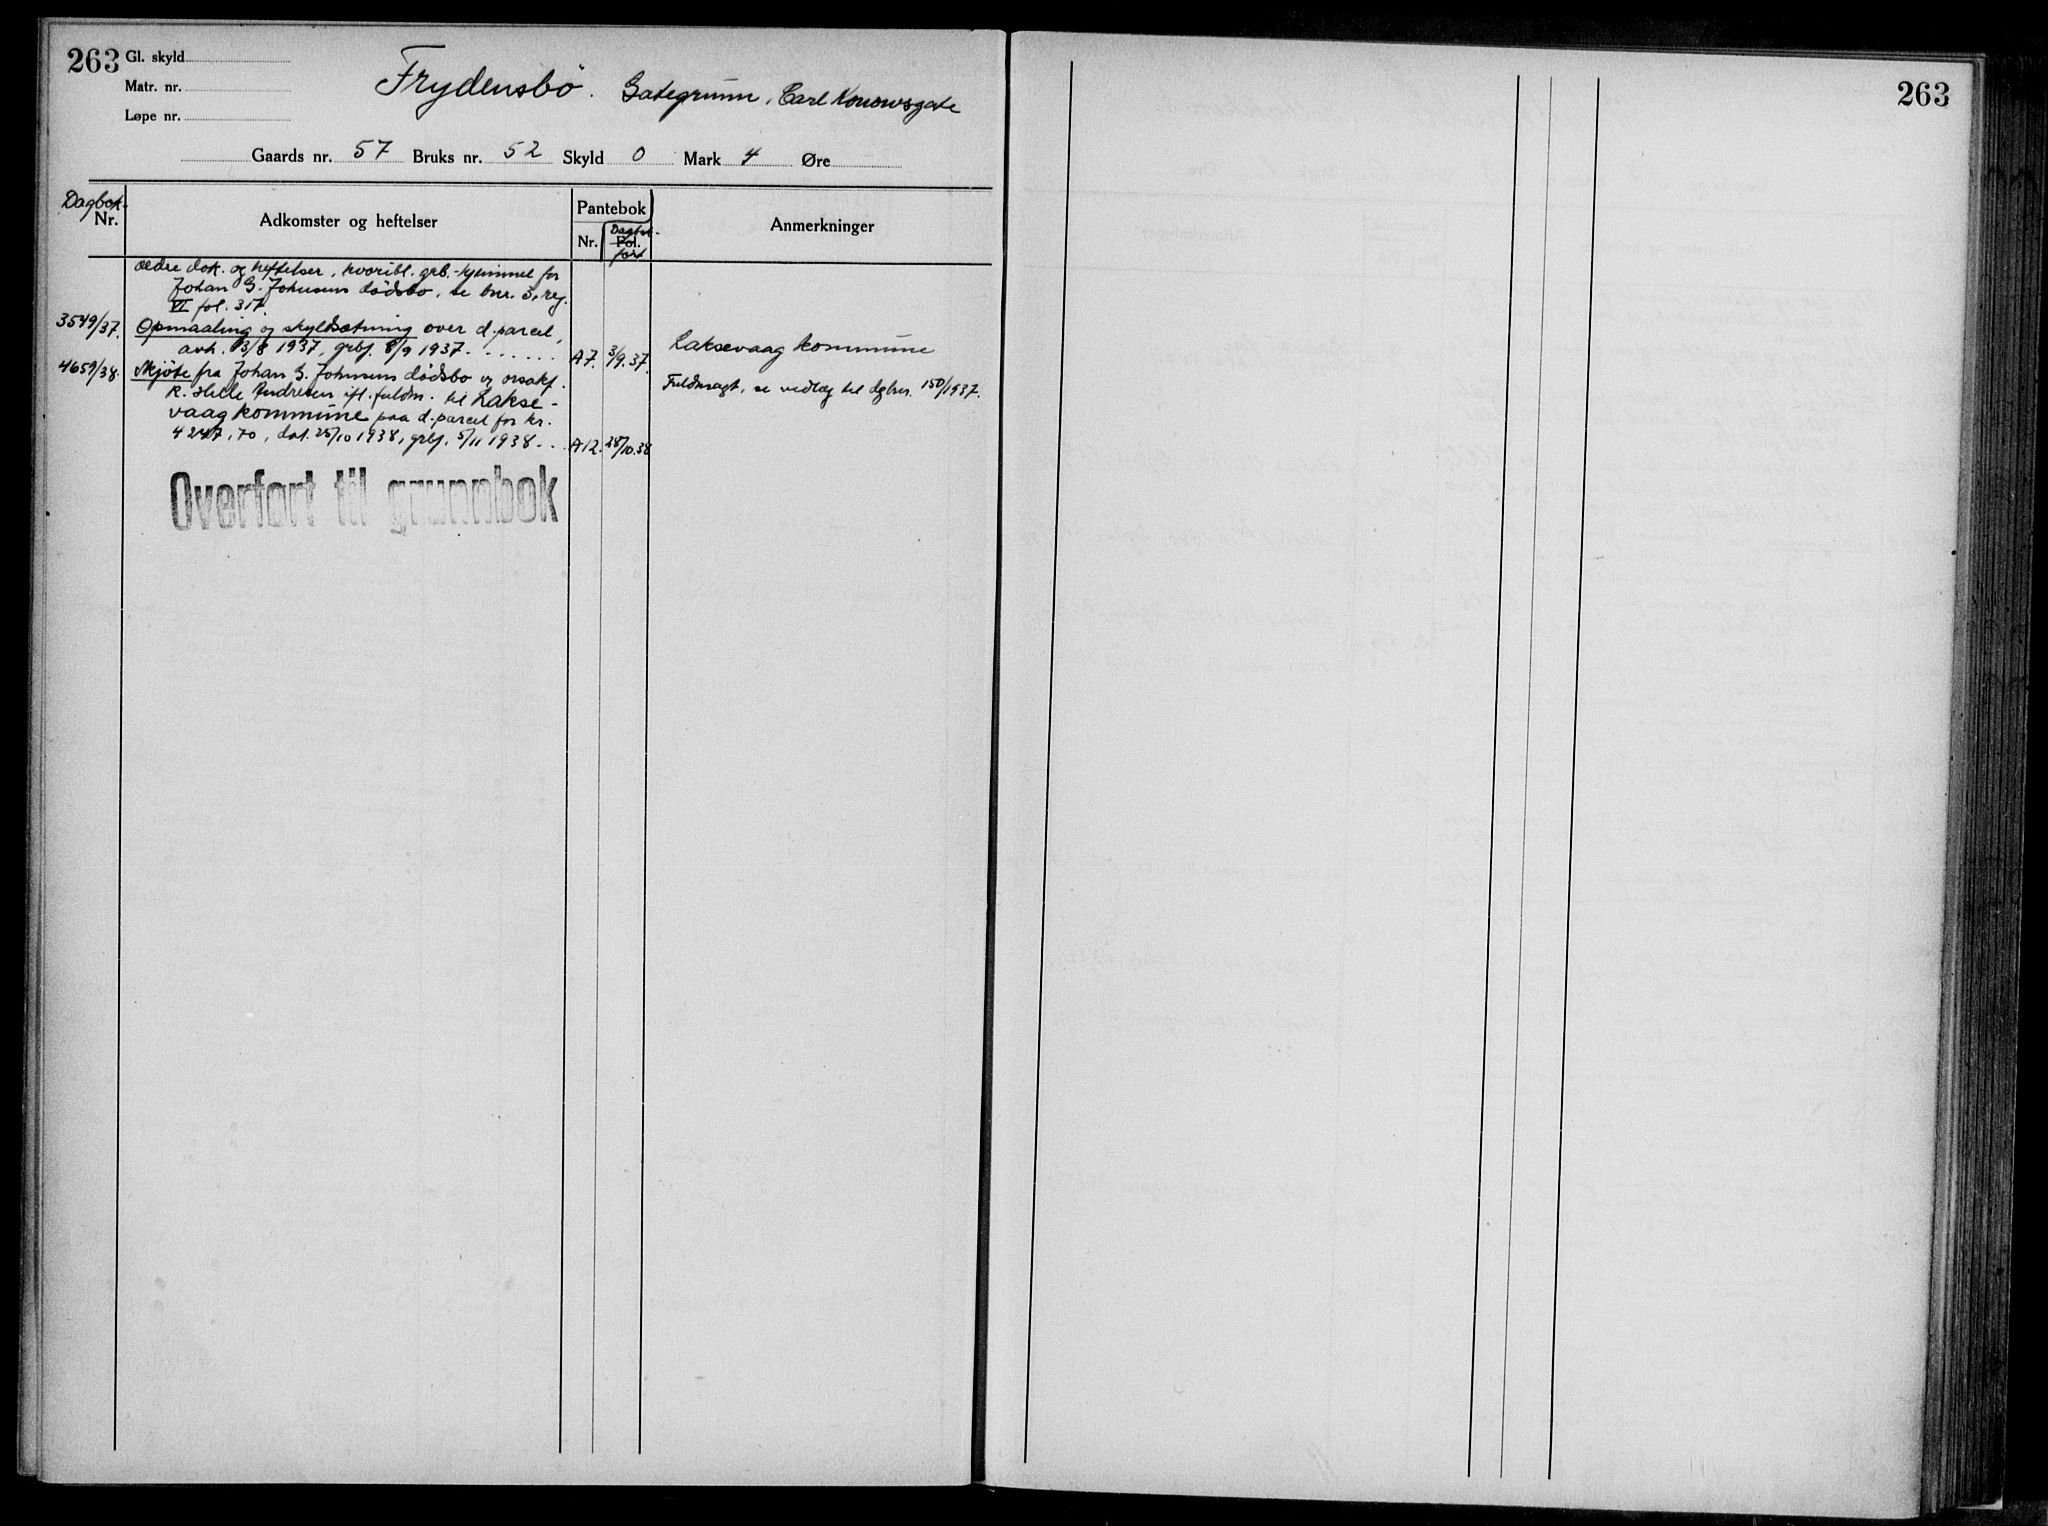 263
Gl. skyld
Matr. nr.
Løpe nr.
Frydensbö. Gategrunn, Carl Konowsgate
Gaards nr. 57 Bruks nr. 52 Skyld 0 Mark 4 Øre
Dagbok-
Nr.
Adkomster og heftelser
Pantebok
Nr.
Dagbok-
Fol.
ført
Anmerkninger
ældre dok. og heftelser, hvoribl. grb.-hjemmel for
Johan G. Johnsens dödsbo, se bnr. 3, reg.
VI fol. 317.
3549/37. Opmaaling og skyldsætning over d. parcel,
avh. 13/8 1937, grbf. 8/9 1937. . . . . . . A7. 3/9.37. Laksevaag kommune
4659/38. Skjöte fra Johan G. Johnsens dödsbo og orsakf.
R. Helle Andresen ifl. fuldm. til Lakse-
vaag kommune paa d. parcel for kr.
4247,70, dat. 25/10 1938, grbf. 5/11 1938. . . A12. 28/10.38
Fuldmagt, se vedlæg til dgbnr. 150/1937.
Overført til grunnbok
263